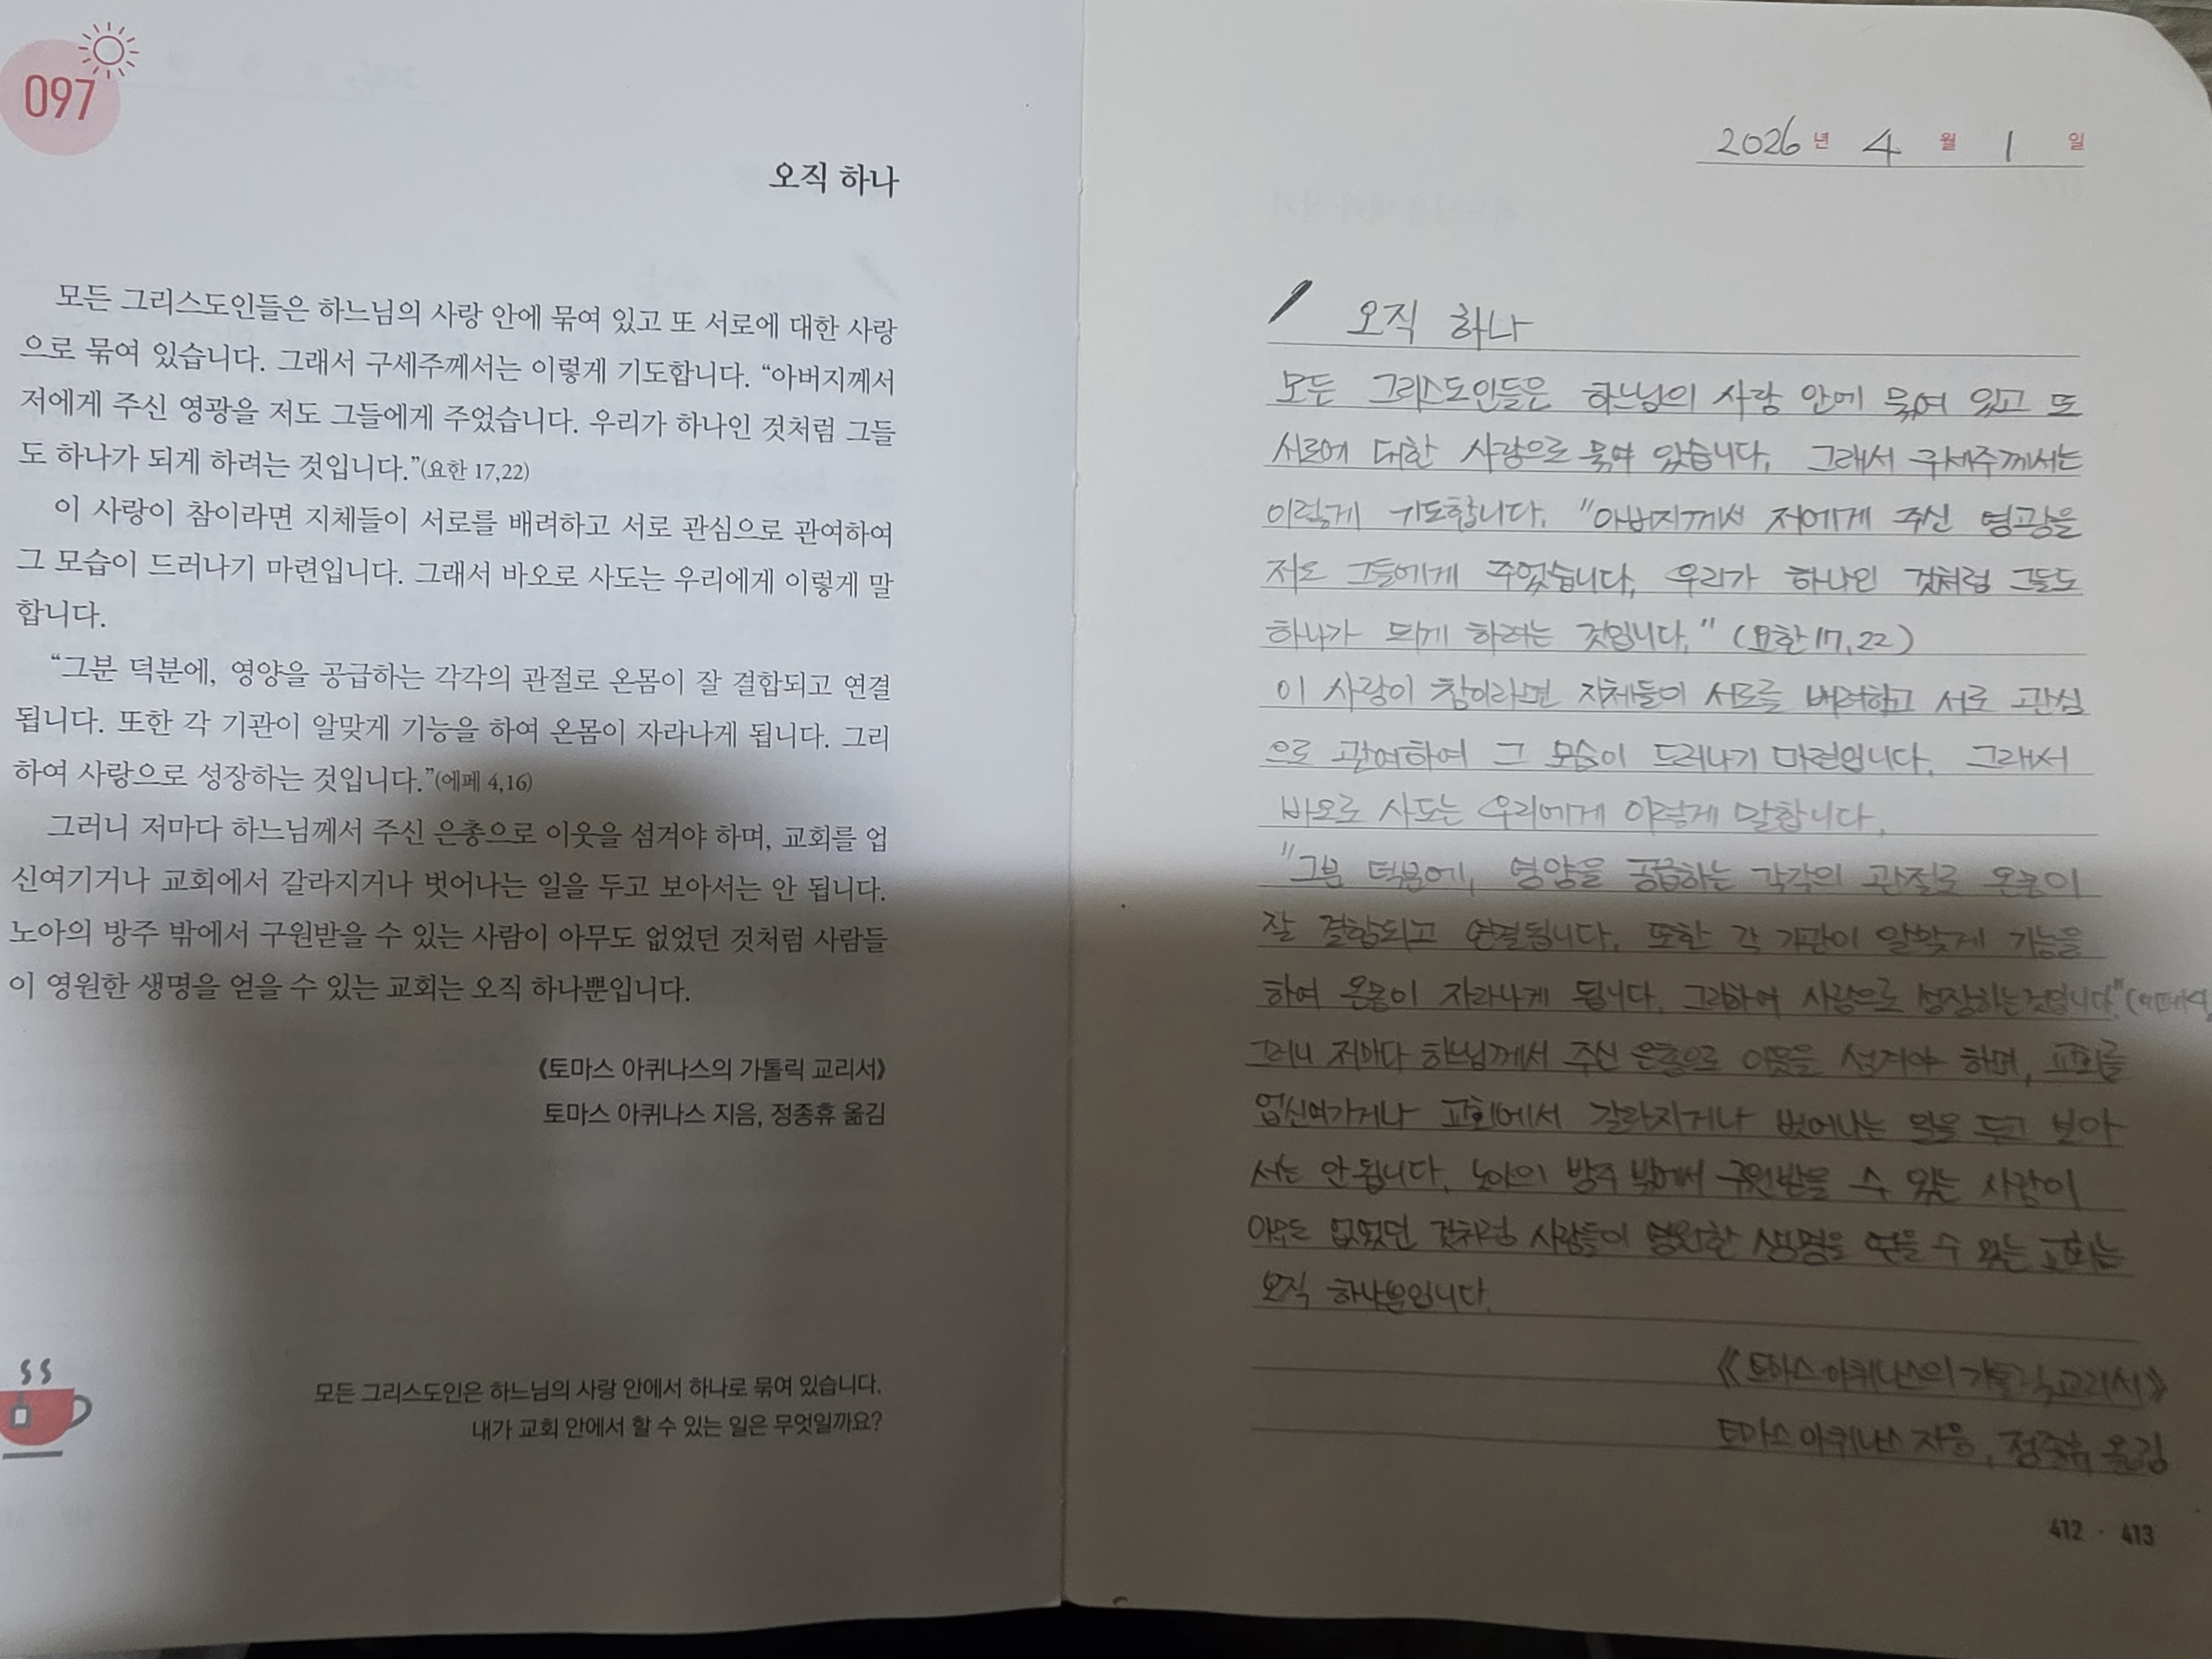 097
오직 하나
모든 그리스도인들은 하느님의 사랑 안에 묶여 있고 또 서로에 대한 사랑
으로 묶여 있습니다. 그래서 구세주께서는 이렇게 기도합니다. “아버지께서
저에게 주신 영광을 저도 그들에게 주었습니다. 우리가 하나인 것처럼 그들
도 하나가 되게 하려는 것입니다.”(요한 17,22)
이 사랑이 참이라면 지체들이 서로를 배려하고 서로 관심으로 관여하여
그 모습이 드러나기 마련입니다. 그래서 바오로 사도는 우리에게 이렇게 말
합니다.
“그분 덕분에, 영양을 공급하는 각각의 관절로 온몸이 잘 결합되고 연결
됩니다. 또한 각 기관이 알맞게 기능을 하여 온몸이 자라나게 됩니다. 그리
하여 사랑으로 성장하는 것입니다.”(에페 4,16)
그러니 저마다 하느님께서 주신 은총으로 이웃을 섬겨야 하며, 교회를 업
신여기거나 교회에서 갈라지거나 벗어나는 일을 두고 보아서는 안 됩니다.
노아의 방주 밖에서 구원받을 수 있는 사람이 아무도 없었던 것처럼 사람들
이 영원한 생명을 얻을 수 있는 교회는 오직 하나뿐입니다.
《토마스 아퀴나스의 가톨릭 교리서》
토마스 아퀴나스 지음, 정종휴 옮김
모든 그리스도인은 하느님의 사랑 안에서 하나로 묶여 있습니다.
내가 교회 안에서 할 수 있는 일은 무엇일까요?
2026 년 4 월 1 일
오직 하나
모든 그리스도인들은 하느님의 사랑 안에 묶여 있고 또
서로에 대한 사랑으로 묶여 있습니다. 그래서 구세주께서는
이렇게 기도합니다. "아버지께서 저에게 주신 영광을
저도 그들에게 주었습니다. 우리가 하나인 것처럼 그들도
하나가 되게 하려는 것입니다." (요한 17,22)
이 사랑이 참이라면 지체들이 서로를 배려하고 서로 관심
으로 관여하여 그 모습이 드러나기 마련입니다. 그래서
바오로 사도는 우리에게 이렇게 말합니다.
"그분 덕분에, 영양을 공급하는 각각의 관절로 온몸이
잘 결합되고 연결됩니다. 또한 각 기관이 알맞게 기능을
하여 온몸이 자라나게 됩니다. 그리하여 사랑으로 성장하는 것입니다."
그러니 저마다 하느님께서 주신 은총으로 이웃을 섬겨야 하며, 교회를
업신여기거나 교회에서 갈라지거나 벗어나는 일을 두고 보아
서는 안 됩니다. 노아의 방주 밖에서 구원받을 수 있는 사람이
아무도 없었던 것처럼 사람들이 영원한 생명을 얻을 수 있는 교회는
오직 하나뿐입니다.
《토마스 아퀴나스의 가톨릭 교리서》
토마스 아퀴나스 지음, 정종휴 옮김
412 · 413